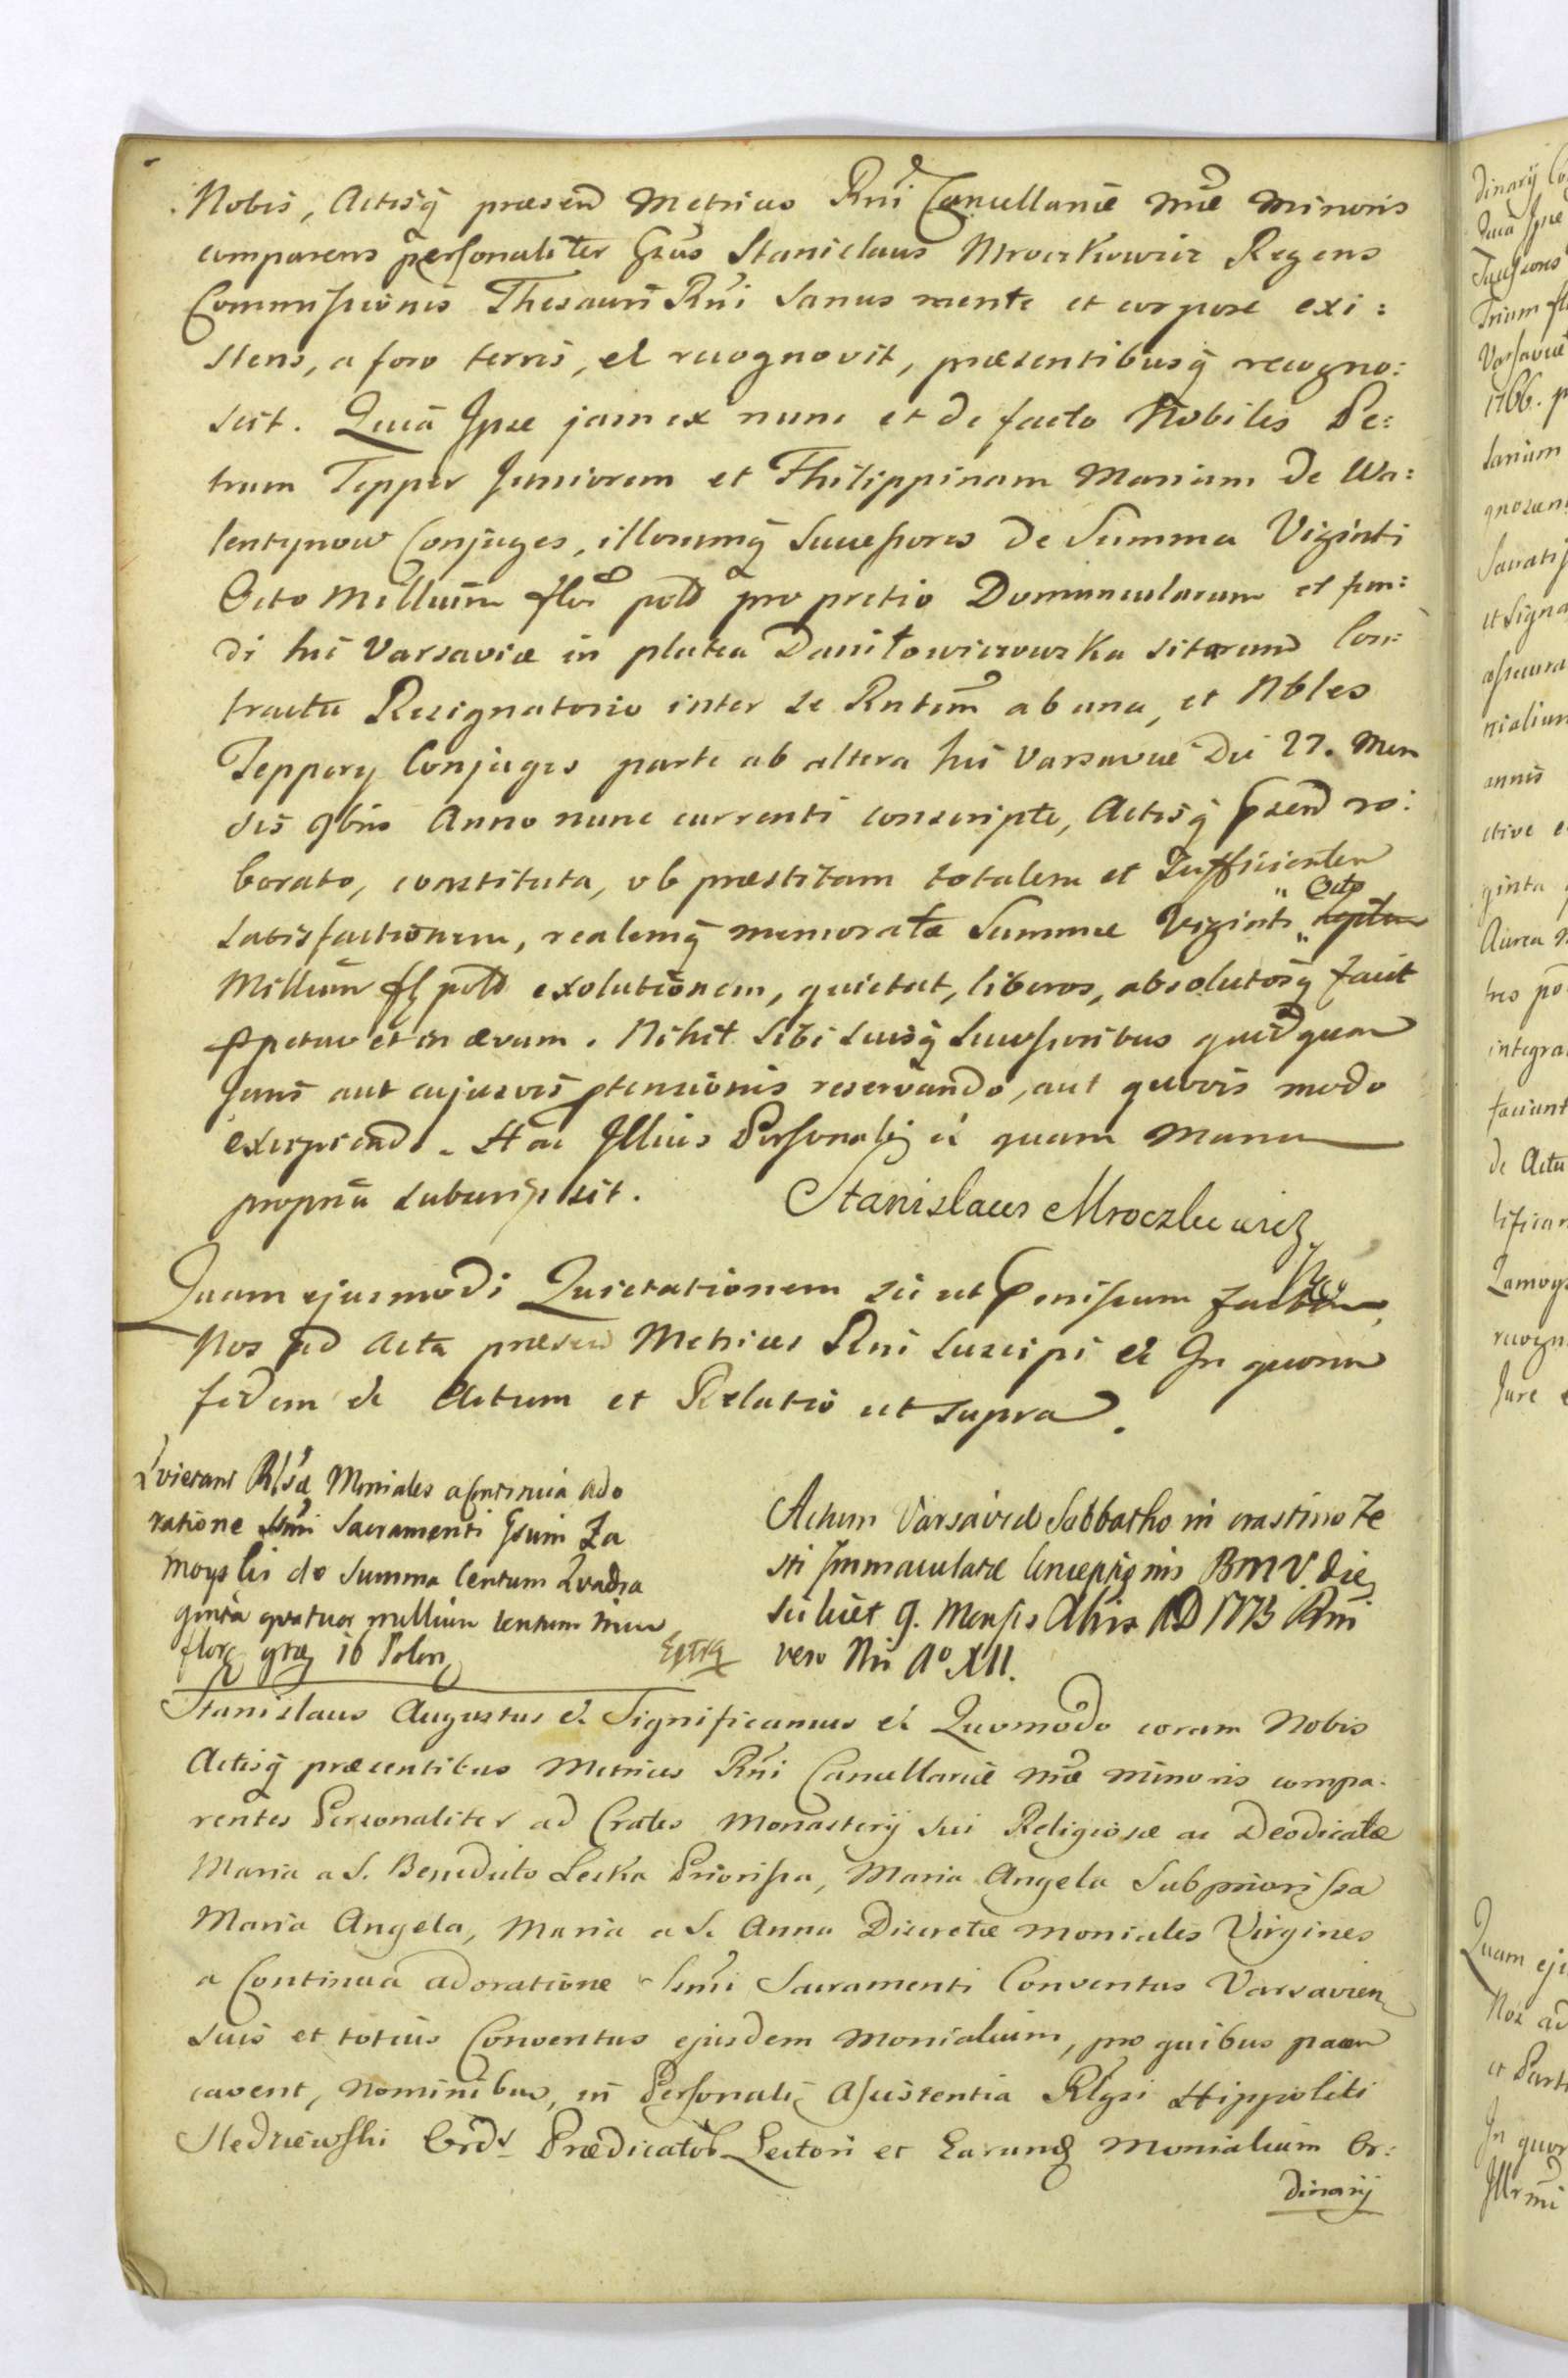 Nobis, Actisq̃ præsend Metrices Rñi Cancellariæ Nræ Minoris
comparens personaliter Gsus Stanislaus Mroczkowicz Regens
Commissionis Thesauri Rñi sanus mente et corpore exi:
stens, a foro terris, et recognovit, præsentibusq̃ recogno:
scit. Quia Ipse jam ex nunc et de facto Nobiles Pe:
trum Tepper Juniorem et Philippinam Mariam de Wa:
lentynow Conjuges, illorumq̃ Successores de Summa Viginti
Octo Millium flor pold pro pretio Domuncularum et fun:
di hic Varsaviæ in platea Daniłowiczowska sitarum Con:
tractu Resignatorio inter se Rntem ab una, et Nbles
Teppery Conjuges parte ab altera hic Varsaviæ Die 27. Men
sis 9bris Anno nunc currenti conscripto, Actisq̃ psend ro:
borato, constituta, ob præstitam totalem et Sufficientem
satisfactionem, realemq̃ memoratæ Summæ Viginti " Octo " septem
Millium fl pold exolutionem, quietat, liberos, absolutosq̃ facit
ppetuo et in ævum. Nihil sibi suisq̃ Successoribus quidquam
Juris aut cujusvis ptensionis reservando, aut quovis modo
excipiendo. Hac Illius Personali è quam Manu
propria subscripsit. Stanislaus Mroczkiewicz
Quam ejusmodi Quietationem sic ut pmissum factam,
Nos ad Acta præsen Metrices Rni suscipi et In quorum
fidem et Actum et Relatio ut supra.
Quietant Rlsæ Moniales a Continua ado
ratione Ssmi Sacramenti Gsum Za
moyski de Summa Centum Quadra
ginta quatuor millium centum trium
flor, grze 16 Polon,
Extra
Actum Varsaviæ Sabbatho in crastino Fe
sti Immaculatæ Conceptionis BMV. die
scilicet 9. Mensis Xbris AD 1775 Rñi
vero Nri A° XII.
Stanislaus Augustus et Significamus et Quomodo coram Nobis
Actisq̃ præsentibus Metrices Rñi Cancellariæ Nræ minoris compa:
rentes Personaliter ad Crates Monasterij sui Religiosæ ac Deodicatæ
Maria a S. Benedicto Lecka Priorissa, Maria Angela Subpriorissa
Maria Angela, Maria a S. Anna Discretæ Moniales Virgines
a Continua adoratione Ssmi Sacramenti Conventus Varsavien
suis et totius Conventus ejusdem Monialium, pro quibus
cavent, Nominibus, in Personali Assistentia Rlgsi Hippoliti
Ord Prædicator Lectori et Earund Monialium Or:
dinarij